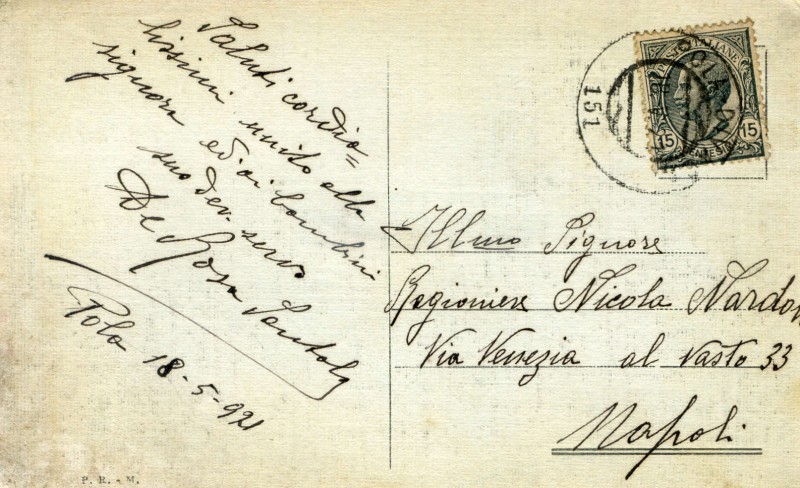 Saluti cordia=
lissimi unito alla
signora ed ai bambini
suo dev. servo
De Rosa
Pola 18-5-921
Illmo Signore
Ragioniere Nicola Nardon
Via Venezia al Vasto 33
Napoli
POSTE ITALIANE
15 15
CENTESIMI
POLA
151
P. R. - M.